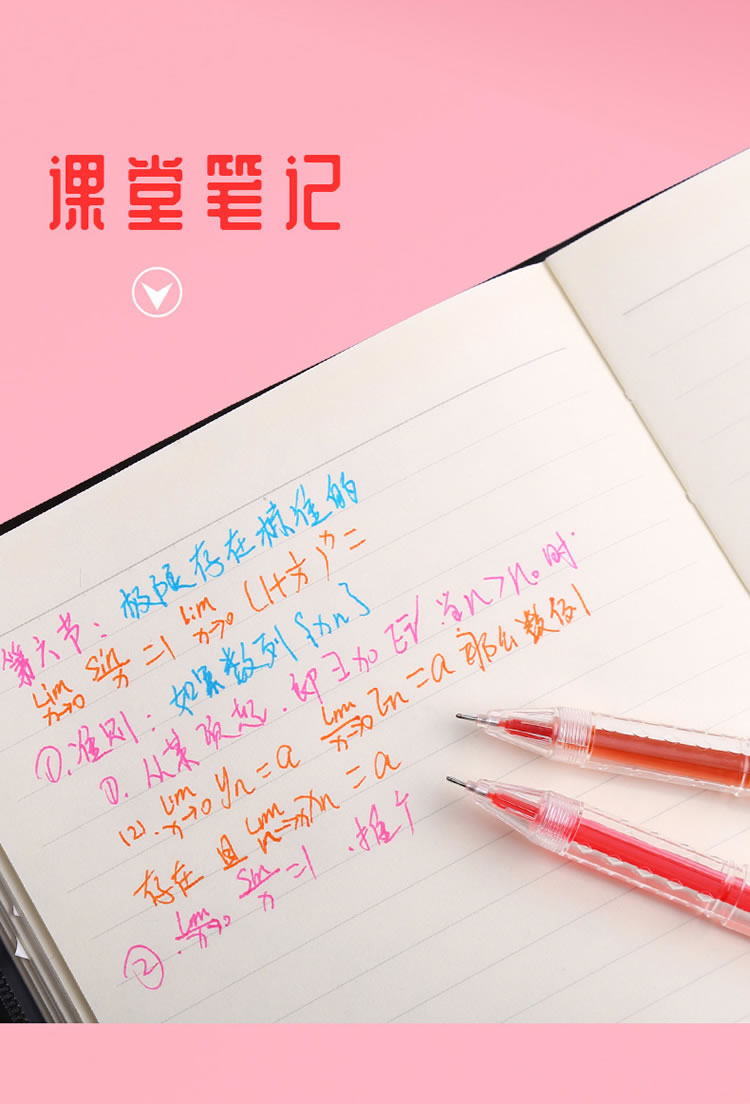 课堂笔记
第六节：极限存在标准的
lim x→0 sin/x =1 lim x→0 (1+1/x)^n =
①.准则：如果数列{xn}
①.从某项起.即 当n>n。时
(2).lim x→0 yn=a lim x→0 Zn=a 那么数列
存在 且 lim n→ xn=a
②.lim x→0 sin/x =1 .推个